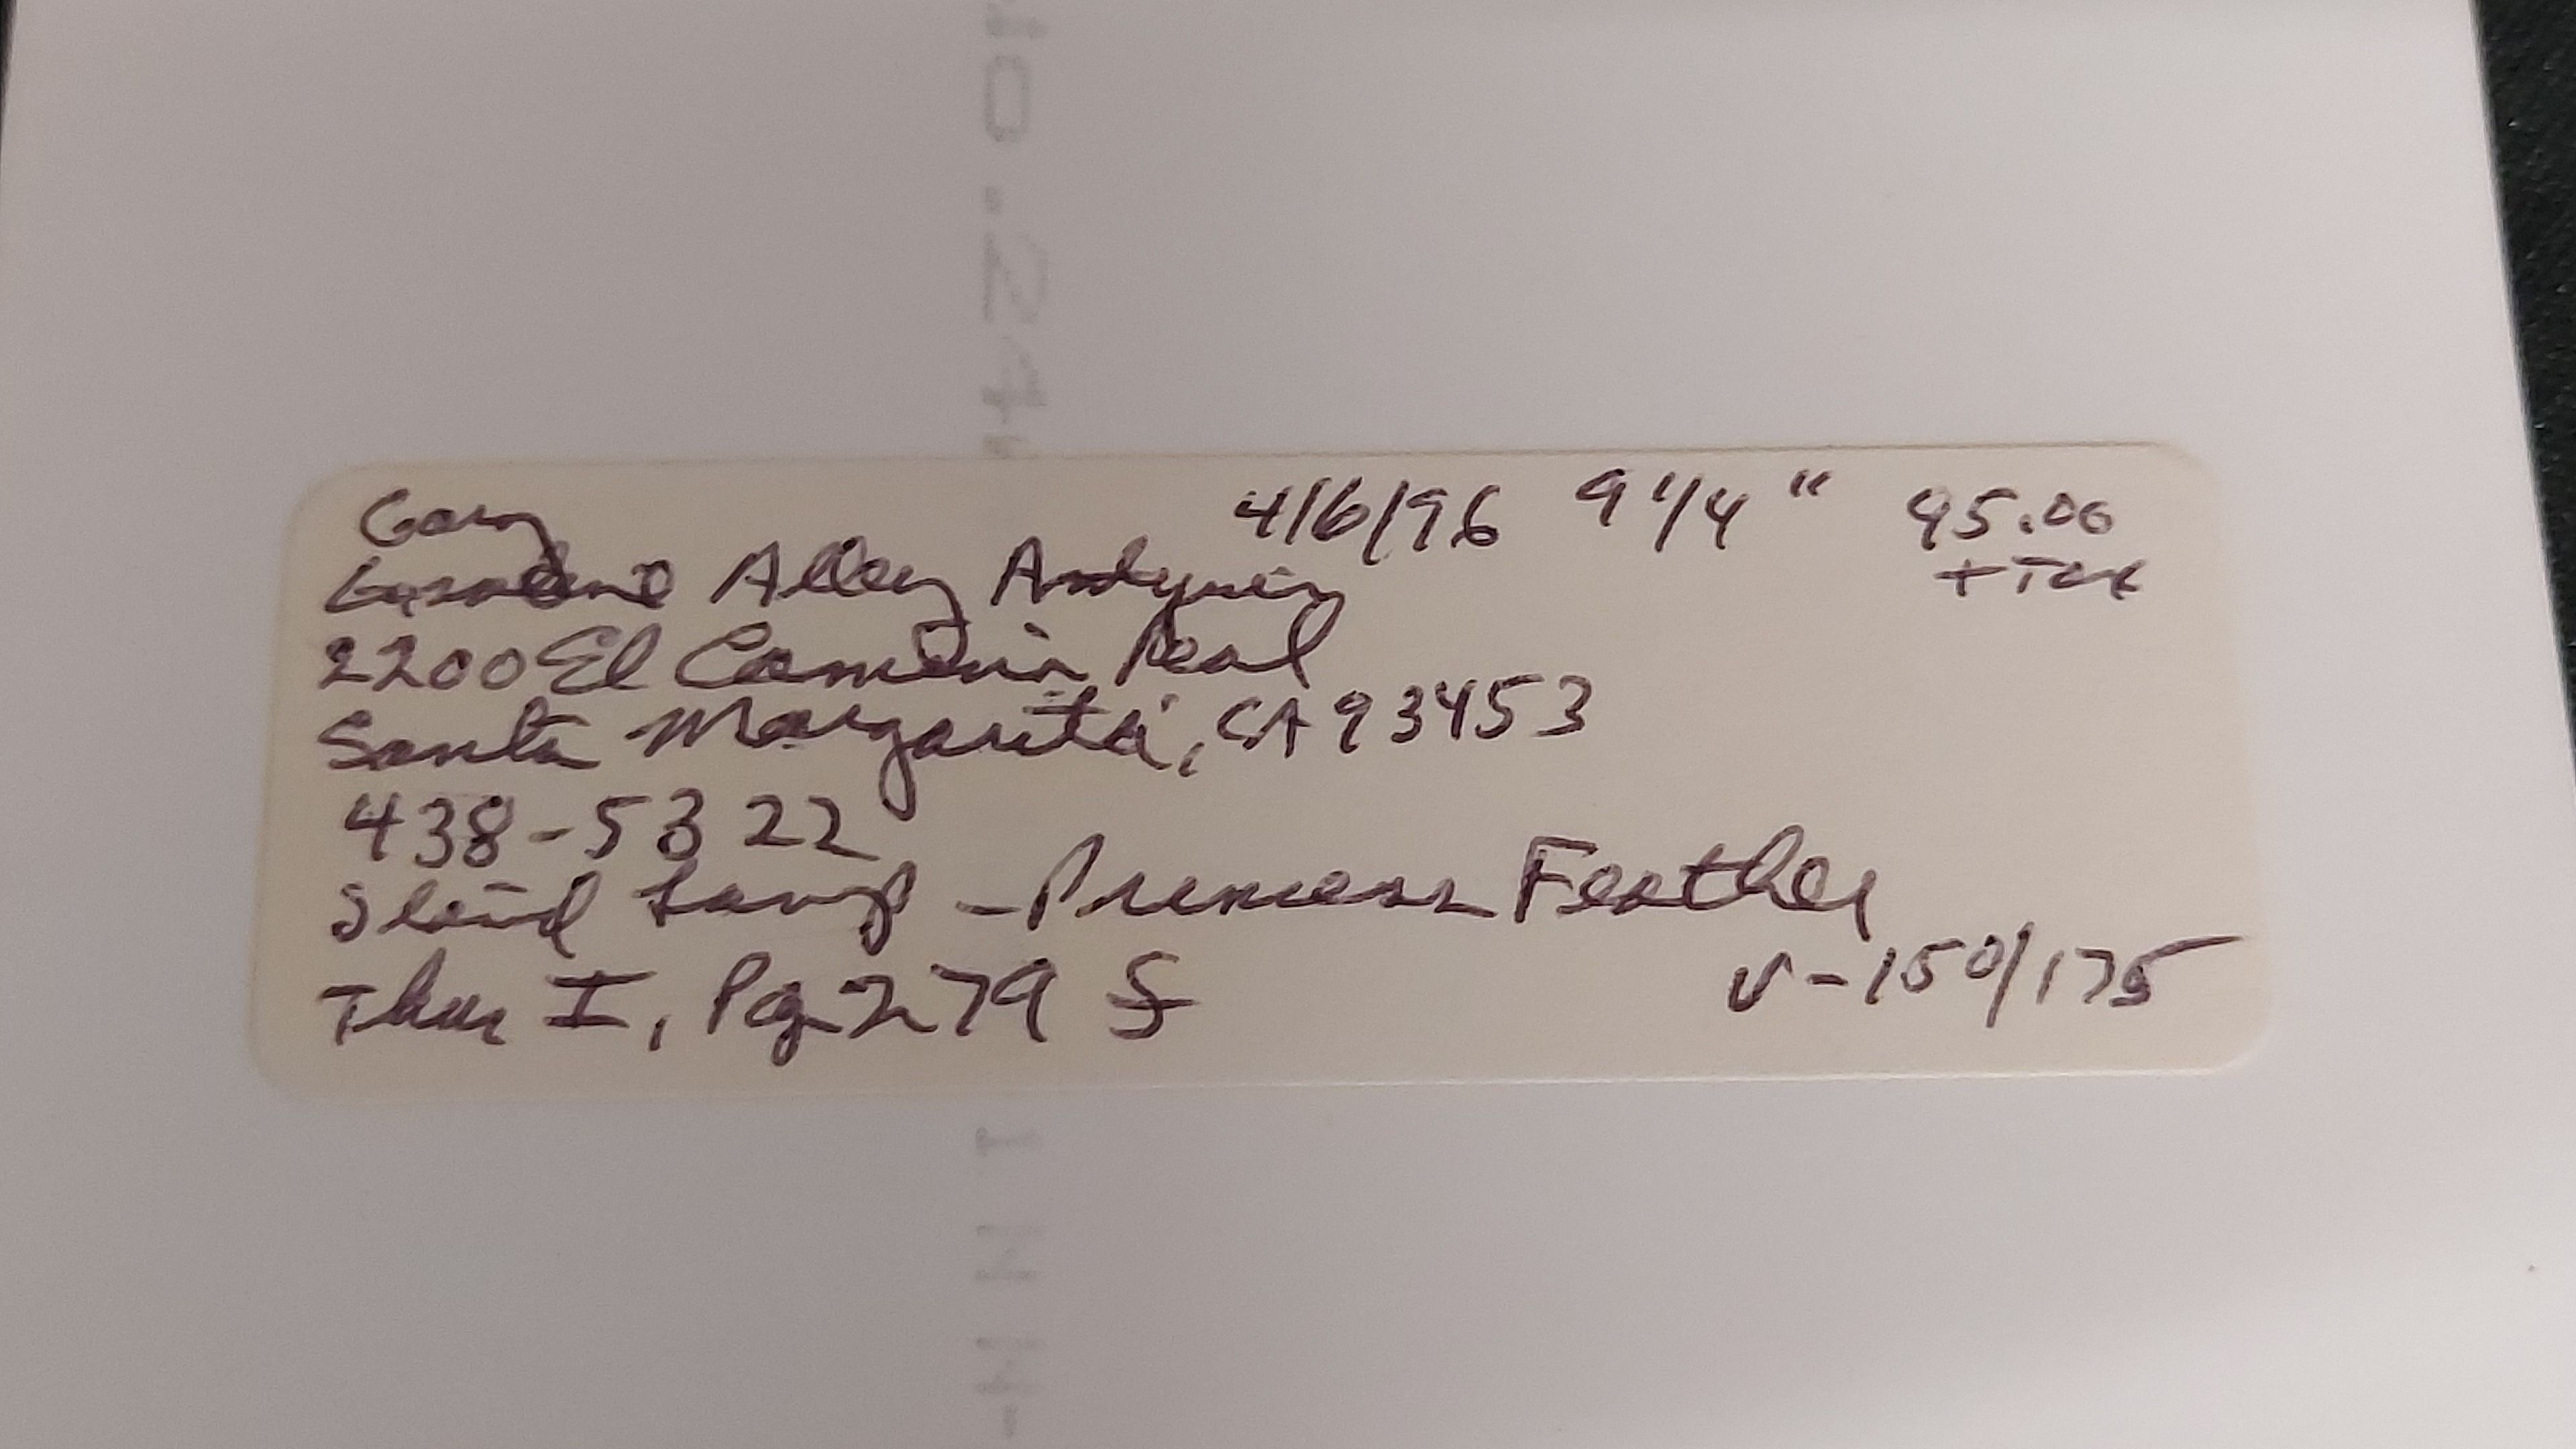 Gary 4/6/96 9 1/4" 95.00
+ Tax
Gasoline Alley Antiques
2200 El Camino Real
Santa Margarita, CA 93453
438-5322
Stand Lamp - Princess Feather
Thur I, Pg 279 f v-150/175